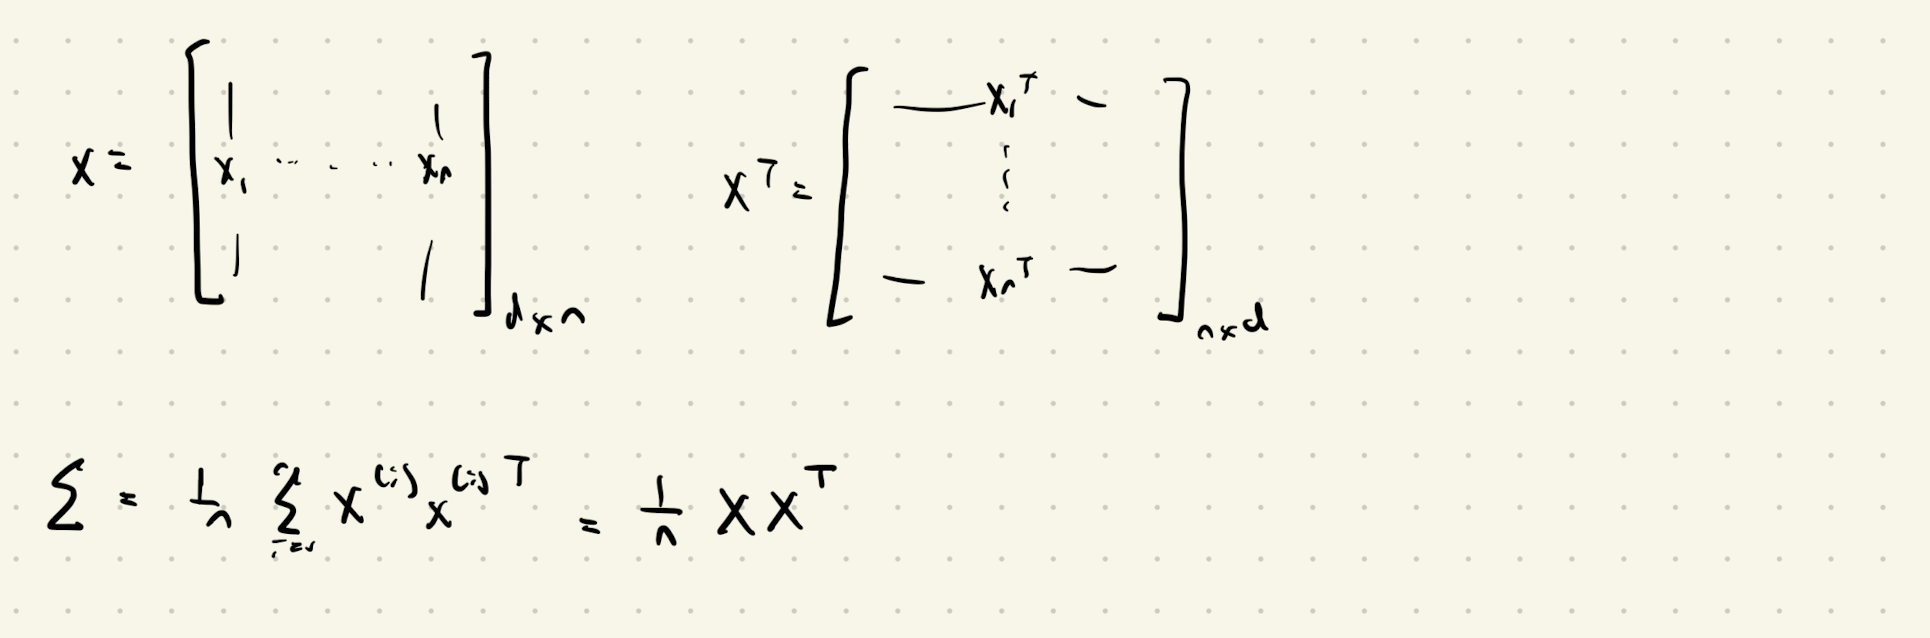 X = [ x₁ ⋯ xₙ ]_{d×n}    X^T = [ — x₁^T — ⋮ — xₙ^T — ]_{n×d}
Σ = 1/n Σ_{i=1}^{n} x^{(i)} x^{(i)T} = 1/n X X^T